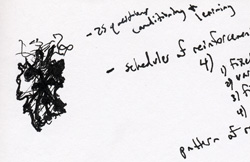 - 25 questions
conditioning & learning
- schedules of reinforcement
4)
1) Fixe
2) var
3) Fi
4)
pattern of r